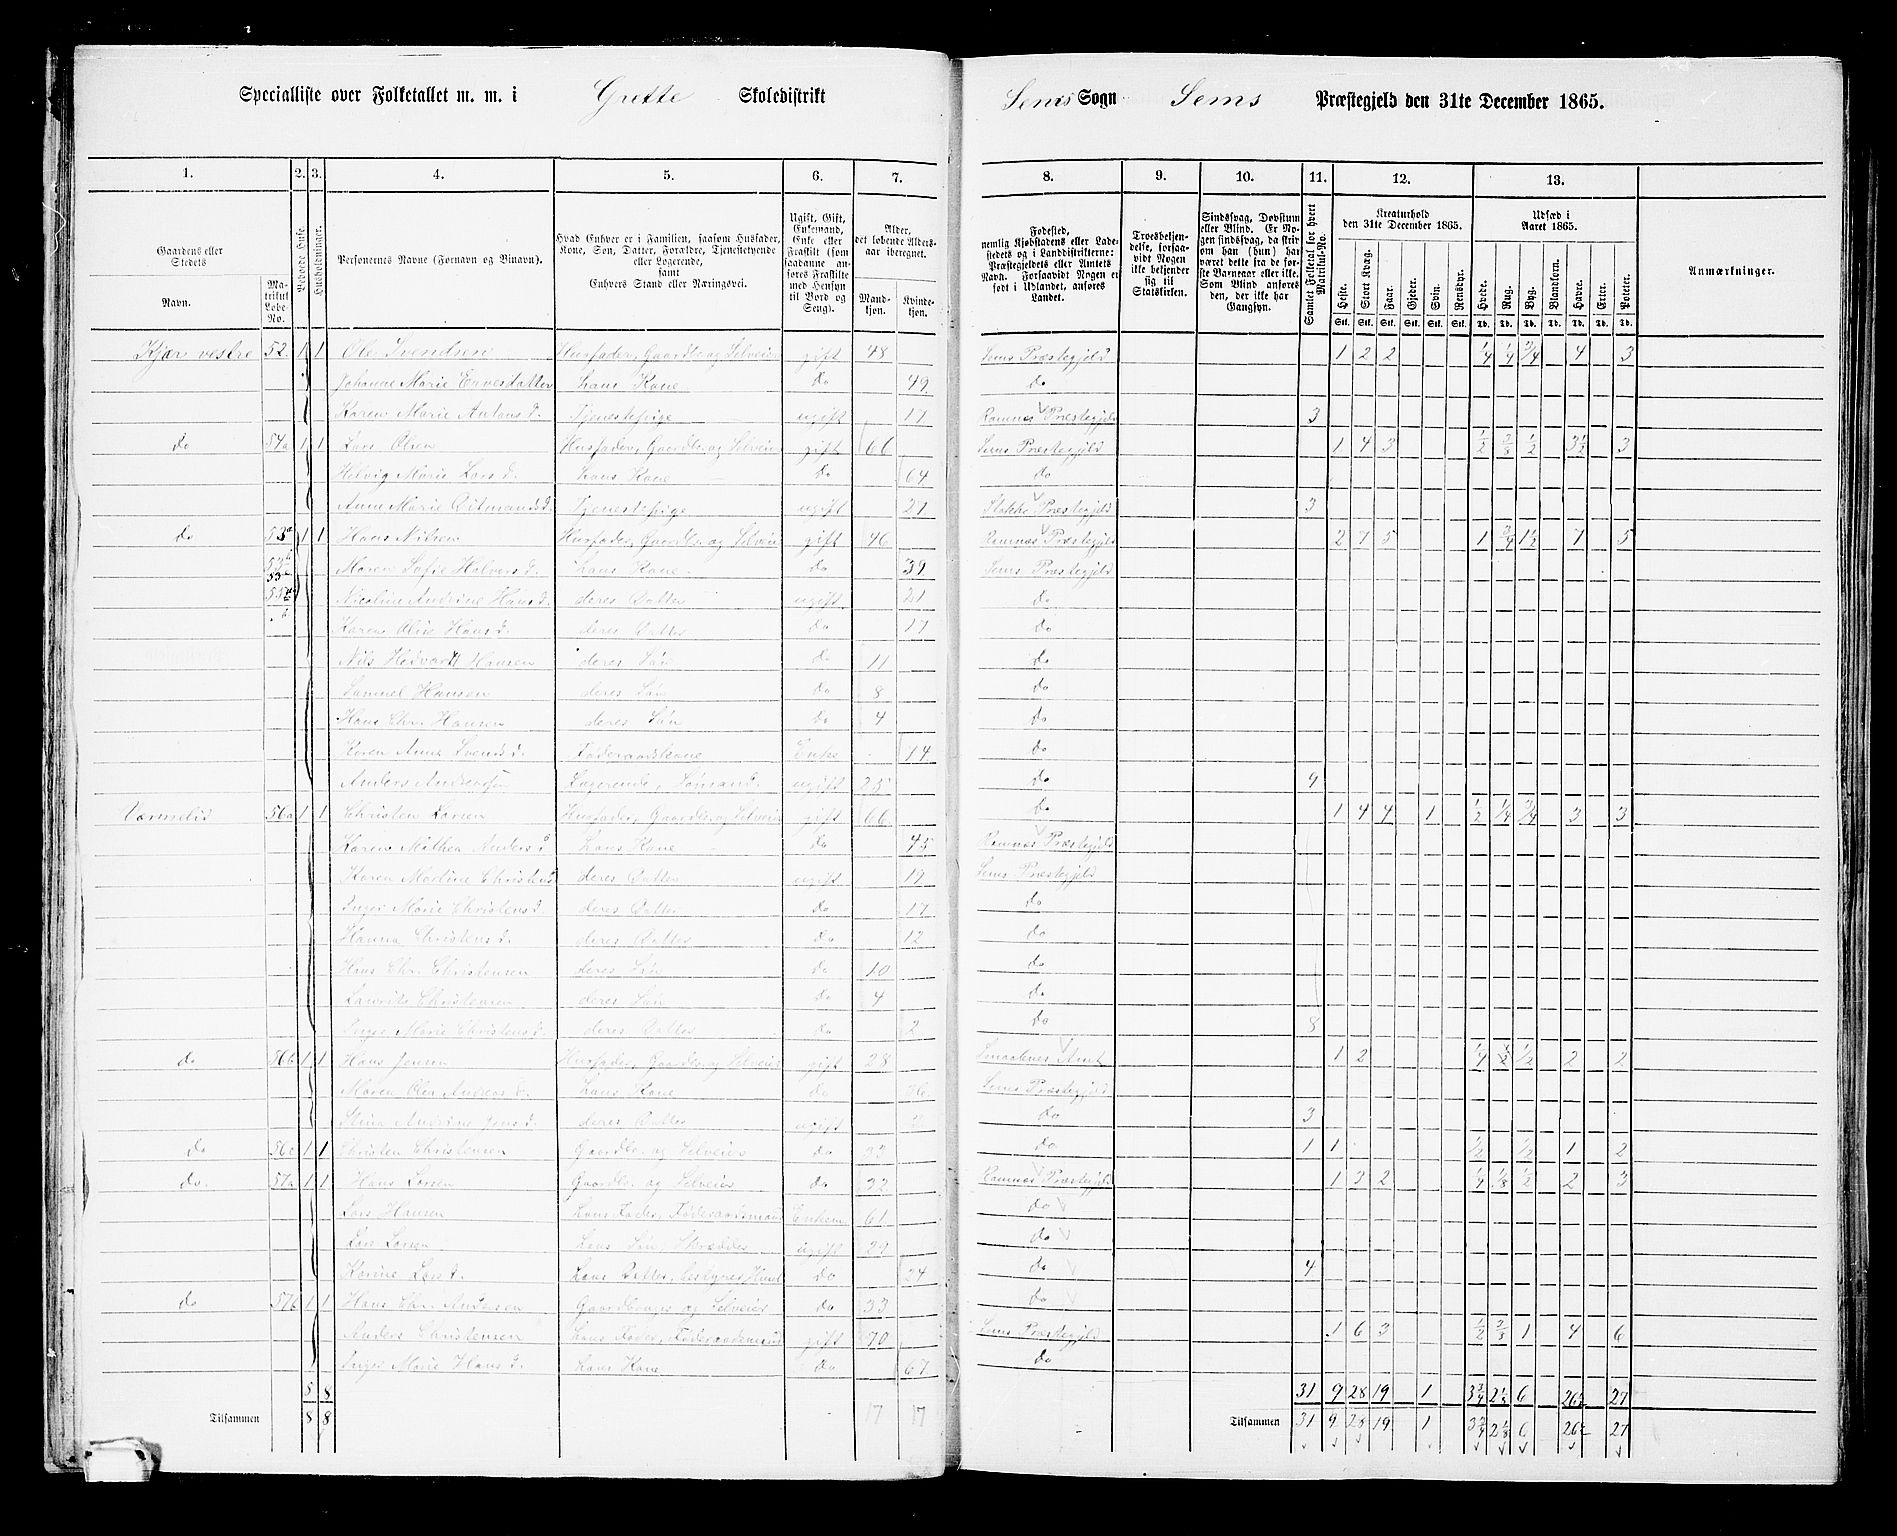 Specialliste over Folketallet m. m. i Grette Skoledistrikt Sems Sogn Sems Præstegjeld den 31te December 1865.
1. 2. 3. 4. 5. 6. 7. 8. 9. 10. 11. 12. 13.
Gaardens eller Stedets
Navn.
Matrikul Løbe-No.
Beboede Huse.
Husholdninger.
Personernes Navne (Fornavn og Binavn).
Hvad Enhver er i Familien, saasom Husfader, Kone, Søn, Datter, Forældre, Tjenestetyende eller Logerende,
samt
Enhvers Stand eller Næringsvei.
Ugift, Gift, Enkemand, Enke eller Fraskilt (som saadanne anføres Fraskilte med Hensyn til Bord og Seng).
Alder, det løbende Alders-aar iberegnet.
Mandkjøn. Kvindekjøn.
Fødested, nemlig Kjøbstadens eller Ladestedets og i Landdistrikterne: Præstegjeldets eller Amtets Navn. Forsaavidt Nogen er født i Udlandet, anføres Landet.
Troesbekjendelse, forsaavidt Nogen ikke bekjender sig til Statskirken.
Sindssvag, Døvstum eller Blind. Er Nogen sindssvag, da skrives om han (hun) har været dette fra de første Barneaar eller ikke. Som Blind anføres den, der ikke har Gangsyn.
Samlet Folketal for hvert Matrikul-No.
Kreaturhold den 31te December 1865.
Heste. Stort Kvæg. Faar. Gjeder. Svin. Rensdyr.
Udsæd i Aaret 1865.
Hvede. Rug. Byg. Blandkorn. Havre. Erter. Poteter.
Anmærkninger.
Stk. Stk. Stk. Stk. Stk. Stk. Td. Td. Td. Td. Td. Td. Td.
Kjær vestre 52 1 1 Ole Svendsen Husfader, Gaardbr. og Selveier gift 48 Sems Præstegjeld 1 2 2 1/4 1/4 3/4 4 3
Johanne Marie Enersdatter hans Kone do 49 do
Karen Marie Antons d. Tjenestepige ugift 17 Ramnes Præstegjeld 3
do 54a 1 1 Lars Olsen Husfader, Gaardbr. og Selveier gift 66 Sems Præstegjeld 1 4 3 1/2 3/8 1/2 3 1/2 3
Helvig Marie Lars d. hans Kone do 64 do
Anne Marie Ditmansd. Tjenestepige ugift 21 Stokke Præstegjeld 3
do 53a 1 1 Hans Nilsen Husfader, Gaardbr. og Selveier gift 46 Ramnes Præstegjeld 2 7 5 1 3/4 1 1/2 7 5
53b Maren Sofie Halvors d. hans Kone do 39 Sems Præstegjeld
53c
55a Nicoline Andrine Hans d. deres Datter ugift 21 do
b Karen Olise Hans d. deres Datter do 17 do
Nils Hedvard Hansen deres Søn do 11 do
Samuel Hansen deres Søn do 8 do
Hans Chr. Hansen deres Søn do 4 do
Karen Anne Svends d. Føderaadskone Enke 74 do
Anders Andersen Logerende, Sømand. ugift 25 do 9
Varmelid 56a 1 1 Christen Larsen Husfader, Gaardbr. og Selveier gift 66 do 1 4 4 1 1/2 1/4 3/4 3 3
Karen Mathea Anders d hans Kone do 45 Ramnes Præstegjeld
Karen Martine Christens d deres Datter ugift 19 Sems Præstegjeld
Inger Marie Christens d. deres Datter do 17 do
Hanna Christens d. deres Datter do 12 do
Hans Chr. Christensen deres Søn do 10 do
Laurits Christensen deres Søn do 4 do
Inger Marie Christens d. deres Datter do 2 do 8
do 56b 1 1 Hans Jensen Husfader, Gaardbr. og Selveier gift 28 Smaalenes Amt 1 2 1/4 1/2 1/2 2 2
Maren Olea Anders d. hans Kone do 26 Sems Præstegjeld
Stina Andrine Hans d. deres Datter ugift do 3
do 56c 1 1 Christen Christensen Gaardbr. og Selveier do 33 do 1 1 1/2 1/2 1 2
do. 57a 1 1 Hans Larsen Gaardbr. og Selveier do 32 Ramnes Præstegjeld 1 3 2 1/4 1/8 1/2 2 3
Lars Hansen hans Fader, Føderaadsmand Enkem 61 do
Lars Larsen hans Søn Skrædder ugift 29 do
Karine Lars d. hans Datter, bestyrer Huset do 24 do 4
do 57b 1 1 Hans Chr. Andersen Gaardbruger og Selveier do 33 do
Anders Christensen hans Fader, Føderaadsmand gift 70 Sems Præstegjeld 1 6 3 1/2 3/8 1 4 6
Inger Marie Hans d. hans Kone do 67 do
8 8 31 9 28 19 1 3 3/4 6 26 1/2 27
Tilsammen 8 8 17 17 Tilsammen 31 9 28 19 1 3 3/4 2 1/8 6 26 1/2 27